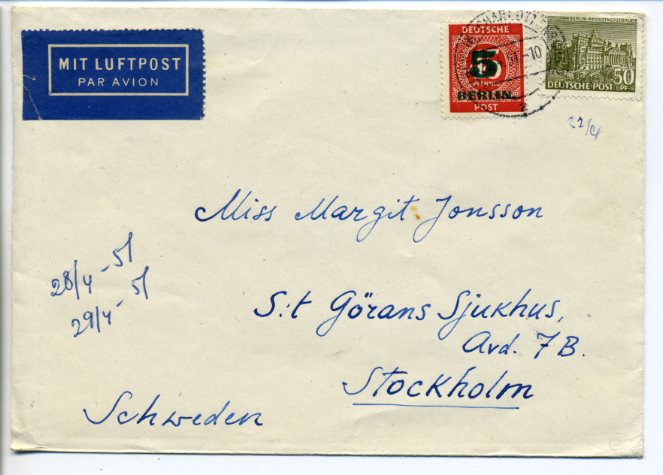 MIT LUFTPOST
PAR AVION
DEUTSCHE
5
PFENNIG
BERLIN
POST
BERLIN REICHSTAGSGEBÄUDE
50
DEUTSCHE POST
22/4
Miss Margit Jonsson
28/4 - 51
29/4 - 51
S:t Görans Sjukhus,
Avd. 7B.
Stockholm
Schweden